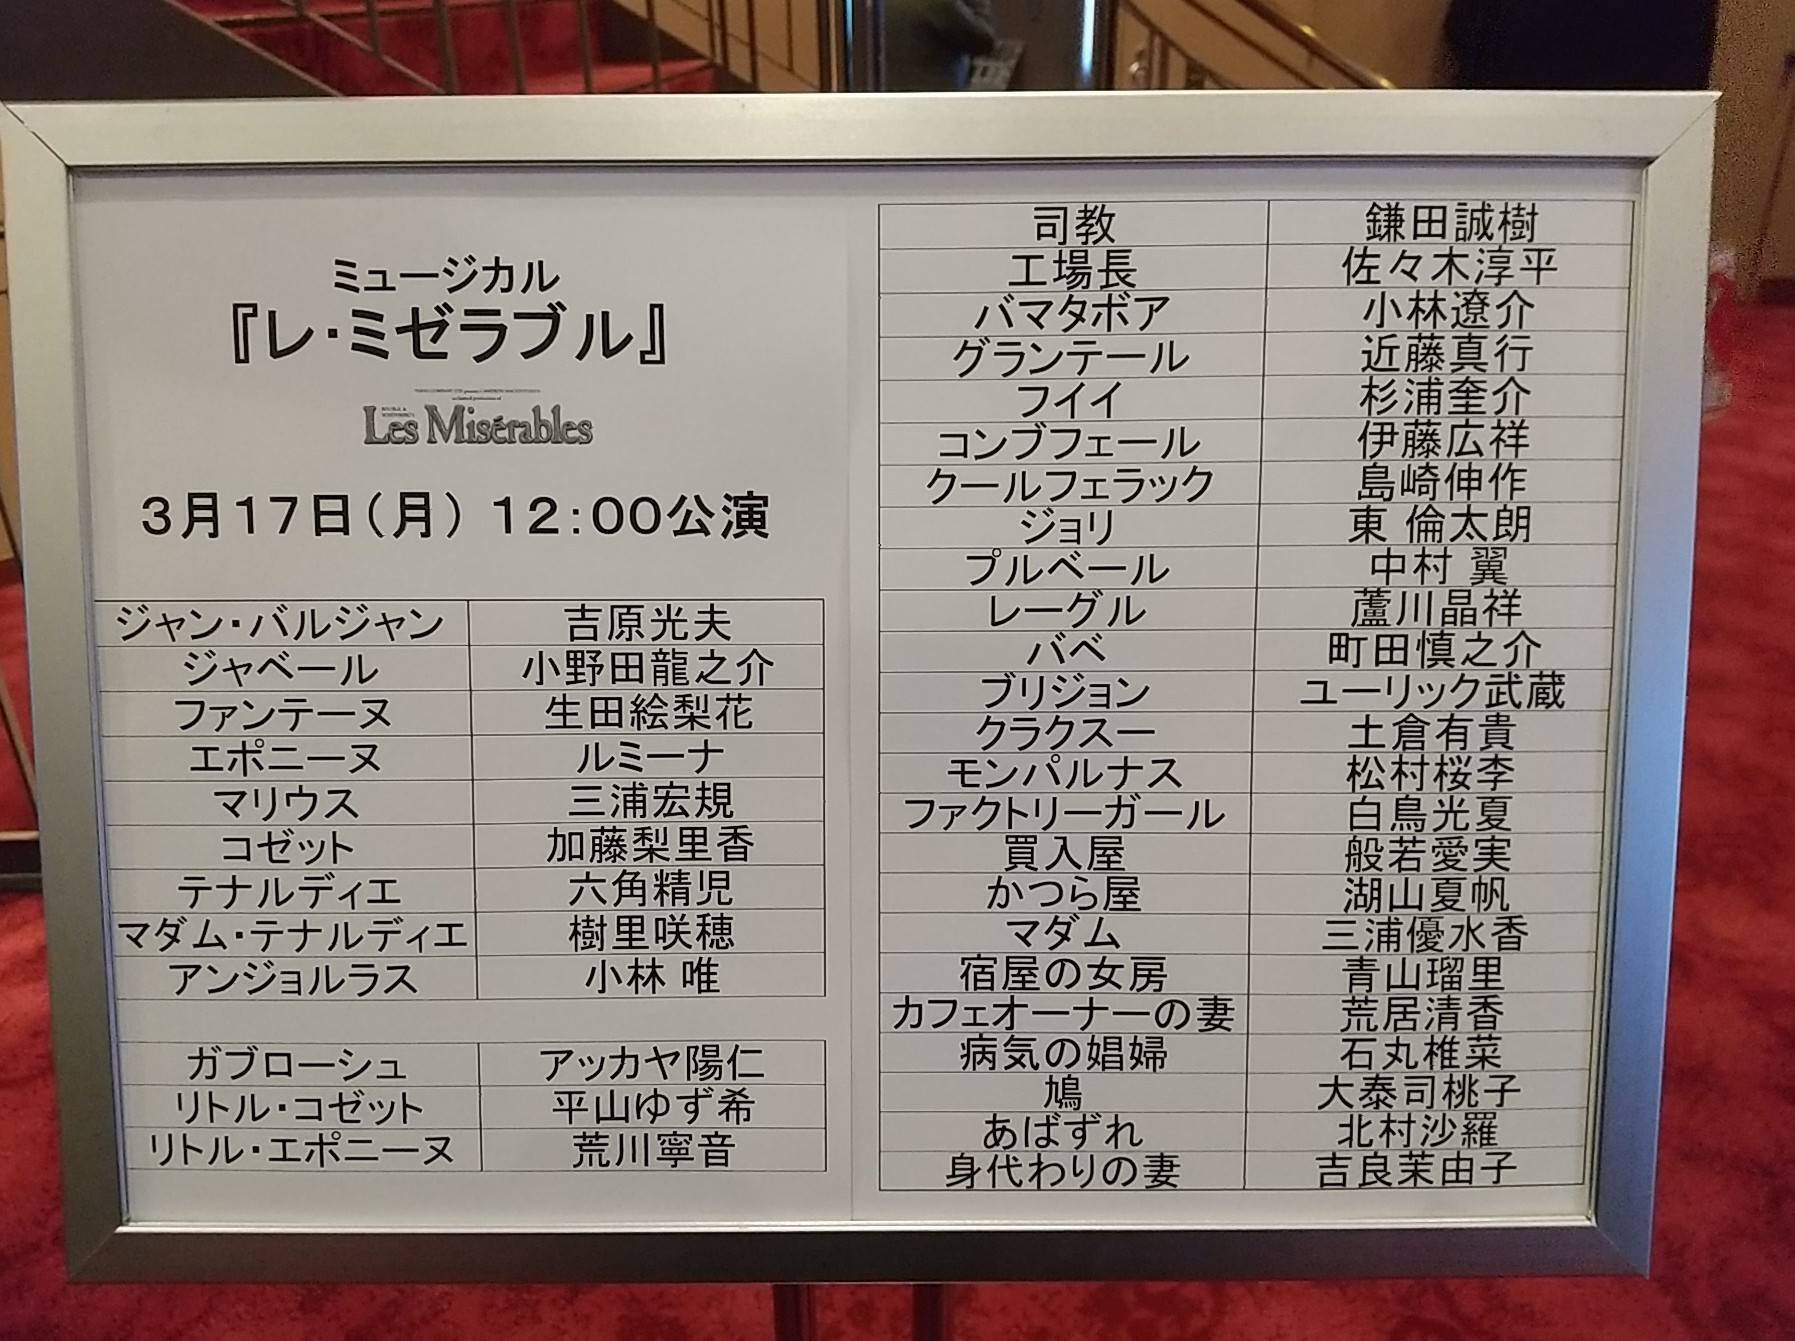 ミュージカル
『レ・ミゼラブル』
Les Misérables
3月17日(月) 12:00公演
ジャン・バルジャン 吉原光夫
ジャベール 小野田龍之介
ファンテーヌ 生田絵梨花
エポニーヌ ルミーナ
マリウス 三浦宏規
コゼット 加藤梨里香
テナルディエ 六角精児
マダム・テナルディエ 樹里咲穂
アンジョルラス 小林 唯
ガブローシュ アッカヤ陽仁
リトル・コゼット 平山ゆず希
リトル・エポニーヌ 荒川寧音
司教 鎌田誠樹
工場長 佐々木淳平
バマタボア 小林遼介
グランテール 近藤真行
フイイ 杉浦奎介
コンブフェール 伊藤広祥
クールフェラック 島崎伸作
ジョリ 東 倫太朗
プルベール 中村 翼
レーグル 蘆川晶祥
バベ 町田慎之介
ブリジョン ユーリック武蔵
クラクスー 土倉有貴
モンパルナス 松村桜李
ファクトリーガール 白鳥光夏
買入屋 般若愛実
かつら屋 湖山夏帆
マダム 三浦優水香
宿屋の女房 青山瑠里
カフェオーナーの妻 荒居清香
病気の娼婦 石丸椎菜
鳩 大泰司桃子
あばずれ 北村沙羅
身代わりの妻 吉良茉由子